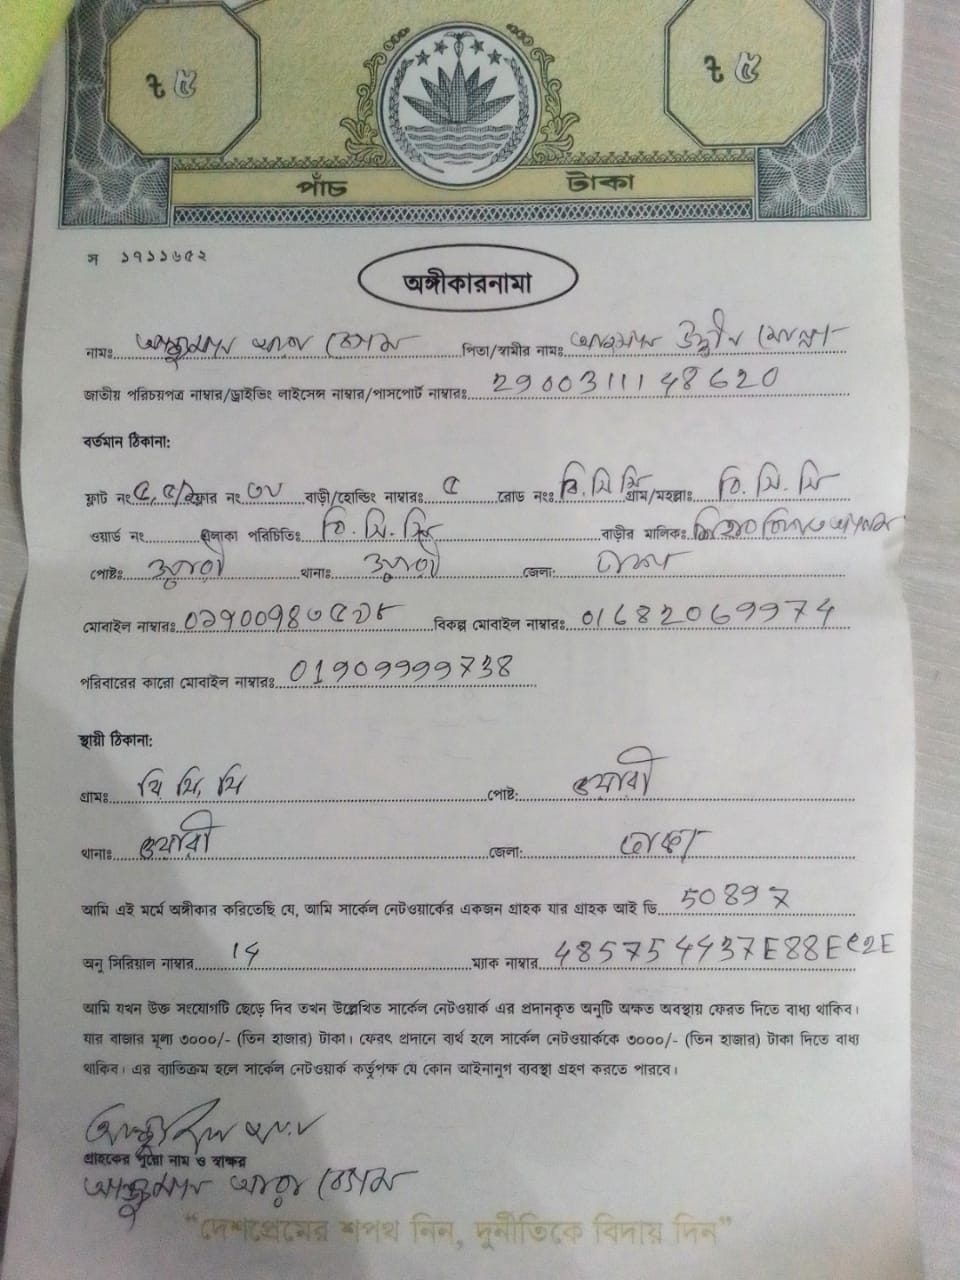 ৳ ৫ ৳ ৫
পাঁচ টাকা
স ১৭১১৬৫২
অঙ্গীকারনামা
নামঃ আঞ্জুমান আরা বেগম পিতা/স্বামীর নামঃ উদ্দীন মোল্লা
জাতীয় পরিচয়পত্র নাম্বার/ড্রাইভিং লাইসেন্স নাম্বার/পাসপোর্ট নাম্বারঃ 2900311148620
বর্তমান ঠিকানা:
ফ্লাট নং ফ্লোর নং বাড়ী/হোল্ডিং নাম্বারঃ ৫ রোড নংঃ বি.সি.সি গ্রাম/মহল্লাঃ বি. সি. সি
ওয়ার্ড নং এলাকা পরিচিতিঃ বি. সি. সি বাড়ীর মালিকঃ
পোষ্টঃ ওয়ারী থানাঃ ওয়ারী জেলা: ঢাকা
মোবাইল নাম্বারঃ বিকল্প মোবাইল নাম্বারঃ 01682069974
পরিবারের কারো মোবাইল নাম্বারঃ 01909999738
স্থায়ী ঠিকানা:
গ্রামঃ বি, সি, সি পোষ্ট: ওয়ারী
থানাঃ ওয়ারী জেলা: ঢাকা
আমি এই মর্মে অঙ্গীকার করিতেছি যে, আমি সার্কেল নেটওয়ার্কের একজন গ্রাহক যার গ্রাহক আই ডি 50897
অনু সিরিয়াল নাম্বার 14 ম্যাক নাম্বার
আমি যখন উক্ত সংযোগটি ছেড়ে দিব তখন উল্লেখিত সার্কেল নেটওয়ার্ক এর প্রদানকৃত অনুটি অক্ষত অবস্থায় ফেরত দিতে বাধ্য থাকিব।
যার বাজার মূল্য ৩০০০/- (তিন হাজার) টাকা। ফেরৎ প্রদানে ব্যর্থ হলে সার্কেল নেটওয়ার্ককে ৩০০০/- (তিন হাজার) টাকা দিতে বাধ্য
থাকিব। এর ব্যাতিক্রম হলে সার্কেল নেটওয়ার্ক কর্তৃপক্ষ যে কোন আইনানুগ ব্যবস্থা গ্রহণ করতে পারবে।
গ্রাহকের পুরো নাম ও স্বাক্ষর
আঞ্জুমান আরা বেগম
“দেশপ্রেমের শপথ নিন, দুর্নীতিকে বিদায় দিন”